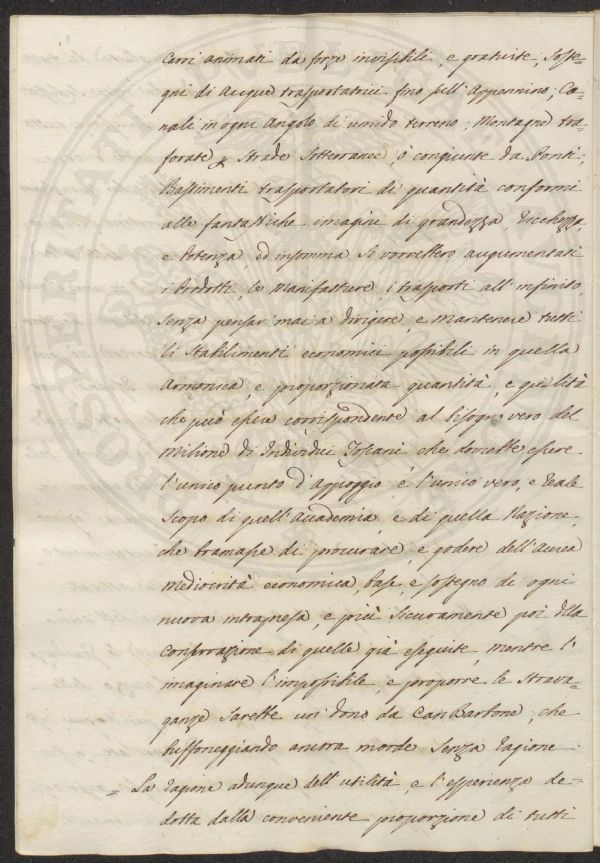 Carri animati da forze invisibili, e gratuite; Soste-
gni di Acque trasportatrici fino sull'Appennino; Ca-
nali in ogni Angolo di umido terreno; Montagne tra-
forate, e Strade Sotterranee, o congiunte da Ponti;
Bastimenti trasportatori di quantità conformi
alle fantastiche imagini di grandezza, Ricchezza,
e Potenza, ed insomma Si vorrebbero augumentati
i Prodotti, le Manifatture, i trasporti all'infinito,
Senza pensar mai a dirigere, e mantenere tutti
li Stabilimenti economici possibili in quella
Armonica, e proporzionata quantità, e qualità
che può essere corrispondente al bisogno vero del
Milione di Individui Toscani che dovrebbe essere
l'unico punto d'appoggio, e l'unico vero, e Reale
Scopo di quell'Accademia, e di quella Nazione,
che bramasse di procurare, e godere dell'Aurea
Mediocrità economica, base, e sostegno di ogni
nuova intrapresa, e più Sicuramente poi della
Conservazione di quelle già eseguite, mentre l'
imaginare l'impossibile, e proporre le Strava-
ganze Sarebbe un dono da Can Barbone, che
buffoneggiando ancora morde Senza Ragione.
= La Ragione adunque dell'utilità, e l'esperienza de-
dotta dalla conveniente proporzione di tutti
PROSPERITATI